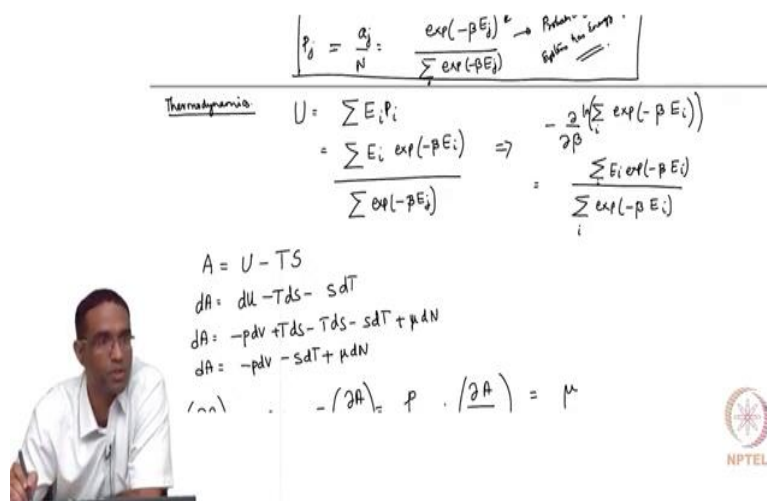 P_j = a_j/N = exp(-βE_j) / Σ exp(-βE_j) →
System has Energy
Thermodynamics U = Σ E_i P_i
= Σ E_i exp(-βE_i) / Σ exp(-βE_j) ⇒ - ∂/∂β ln(Σ_i exp(-βE_i))
= Σ_i E_i exp(-βE_i) / Σ_i exp(-βE_i)
A = U - TS
dA = dU - Tds - SdT
dA = -pdv + Tds - Tds - SdT + μdN
dA = -pdv - SdT + μdN
-(∂A) = P . (∂A) = μ
NPTEL